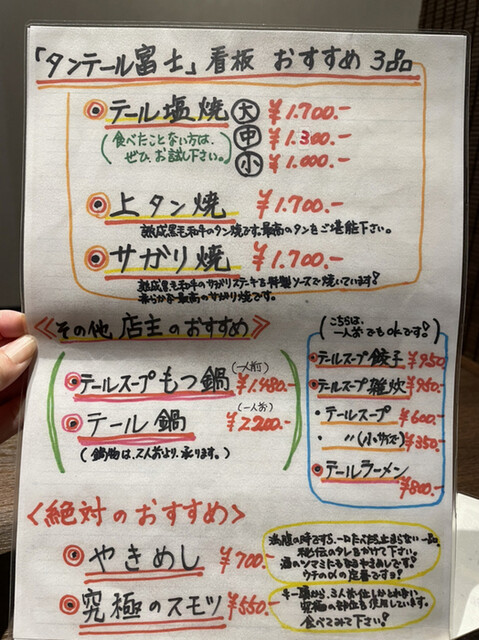 「タンテール富士」看板 おすすめ 3品
テール塩焼 大 ¥1.700.-
(食べたことない方は、 中 ¥1.300.-
ぜひ、お試し下さい。) 小 ¥1.000.-
上タン焼 ¥1.700.-
熟成黒毛和牛のタン焼です。最高のタンをご堪能下さい。
サガリ焼 ¥1.700.-
熟成黒毛和牛のサガリステーキを特製ソースで焼いています!
柔らかな最高のサガリ焼です。
《その他 店主のおすすめ》
(一人前)
テールスープもつ鍋 ¥1.480.-
(一人前)
テール鍋 ¥2200.-
(鍋物は、2人前より、承ります。)
(こちらは、
一人前でもokです!)
テールスープ餃子 ¥950
テールスープ雑炊 ¥950.-
・テールスープ ¥600-
・ 〃 (小サイズ) ¥350.-
テールラーメン
¥800.-
〈絶対のおすすめ〉
やきめし ¥700.-
満腹の時ですら、一口たべたら止まらない一品。
秘伝のタレをかけて下さい。
酒のツマミにもなるやきめしです。
ウチの〆の定番ですョ?
究極のスモツ ¥550.-
牛一頭から、3人前位しかとれない
究極の部位を使用しています。
食べてみて下さい!